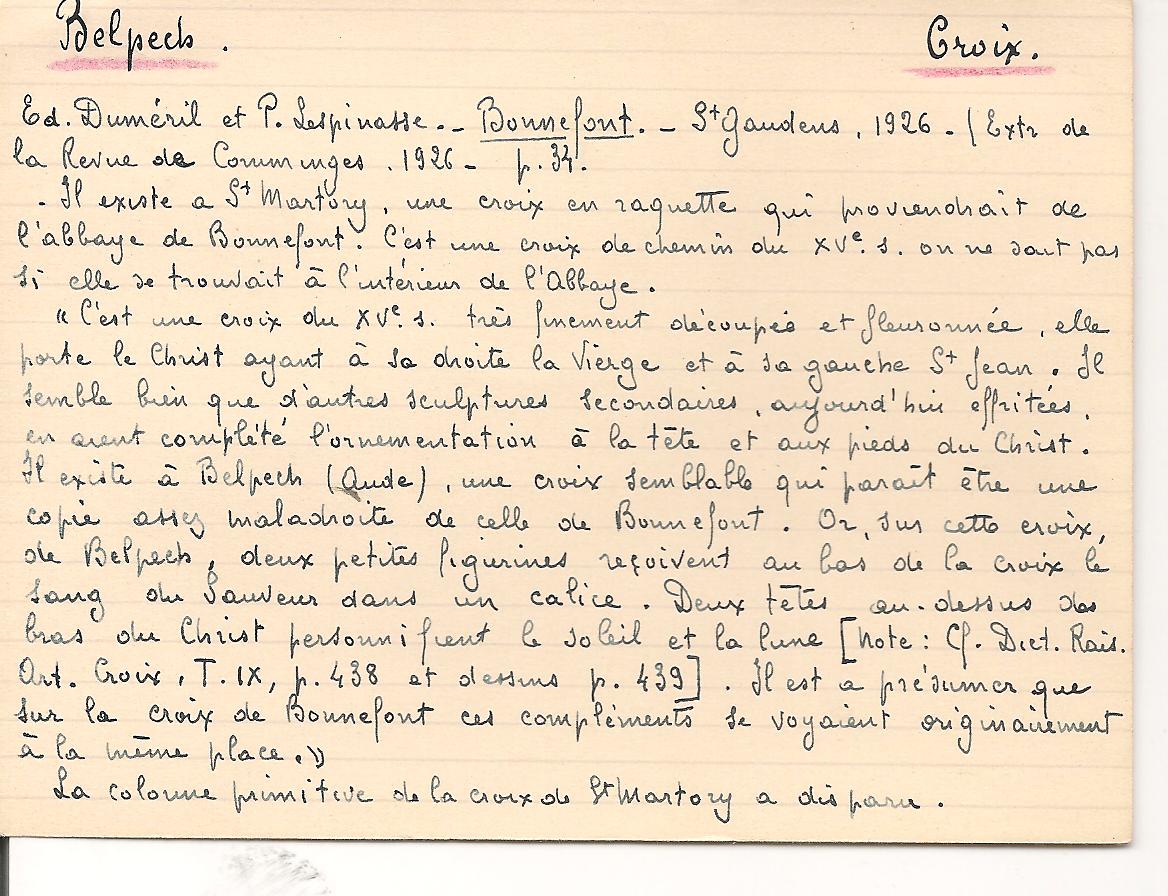 Belpech. Croix.
Ed. Duméril et P. Lespinasse. - Bonnefont. - St Gaudens, 1926 - (Extr de
la Revue de Comminges. 1926 - p. 34.
. Il existe a St Martory, une croix en raquette qui proviendrait de
l'abbaye de Bonnefont. C'est une croix de chemin du XVe. s. on ne sait pas
si elle se trouvait à l'intérieur de l'Abbaye.
"C'est une croix du XVe. s. très finement découpée et fleuronnée, elle
porte le Christ ayant à sa droite la Vierge et à sa gauche St Jean. Il
semble bien que d'autres sculptures secondaires, aujourd'hui effritées,
en aient complété l'ornementation à la tête et aux pieds du Christ.
Il existe à Belpech (Aude), une croix semblable qui paraît être une
copie assez maladroite de celle de Bonnefont. Or, sur cette croix,
de Belpech, deux petites figurines reçoivent au bas de la croix le
sang du Sauveur dans un calice. Deux têtes au-dessus des
bras du Christ personnifient le soleil et la lune [Note : Cf. Dict. Rais.
Art. Croix, T. IX, p. 438 et dessins p. 439]. Il est a présumer que
sur la croix de Bonnefont ces compléments se voyaient originairement
à la même place.»
La colonne primitive de la croix de St Martory a disparu.